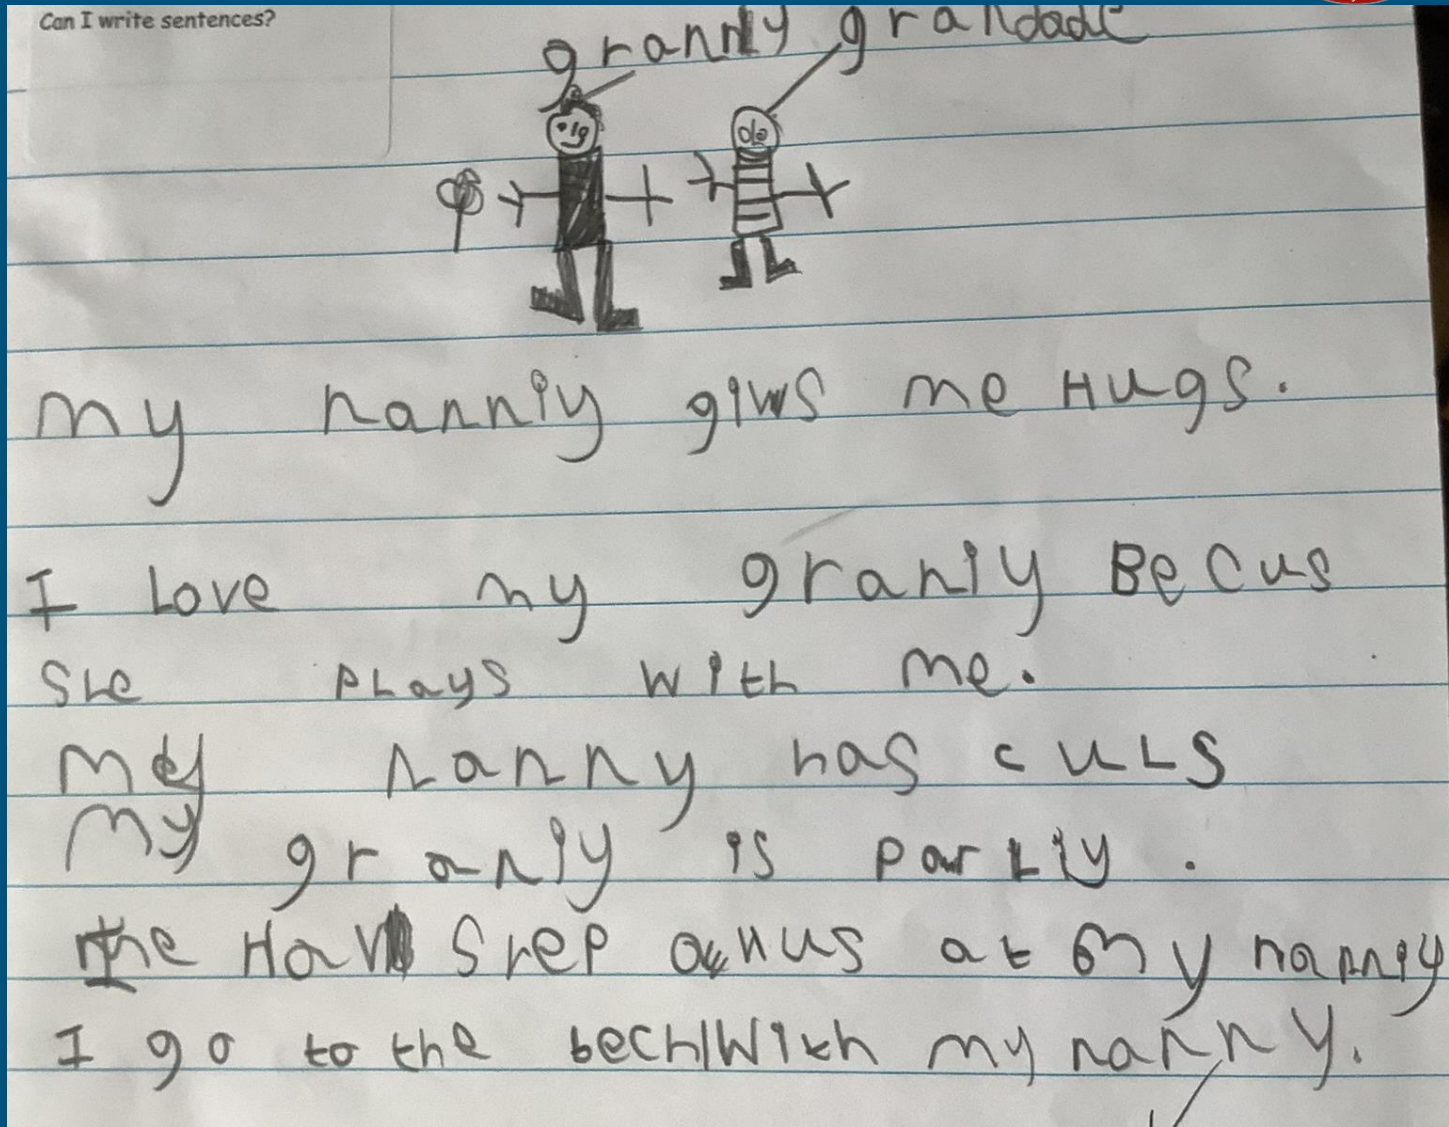 Can I write sentences?
granny grandade
my nanniy giws me Hugs.
I Love my graniy BeCus
She PLays with me.
My nanny has cuLs
My graniy is parLiy.
the Hav Srep at my nanniy
I go to the bech With my nanny.